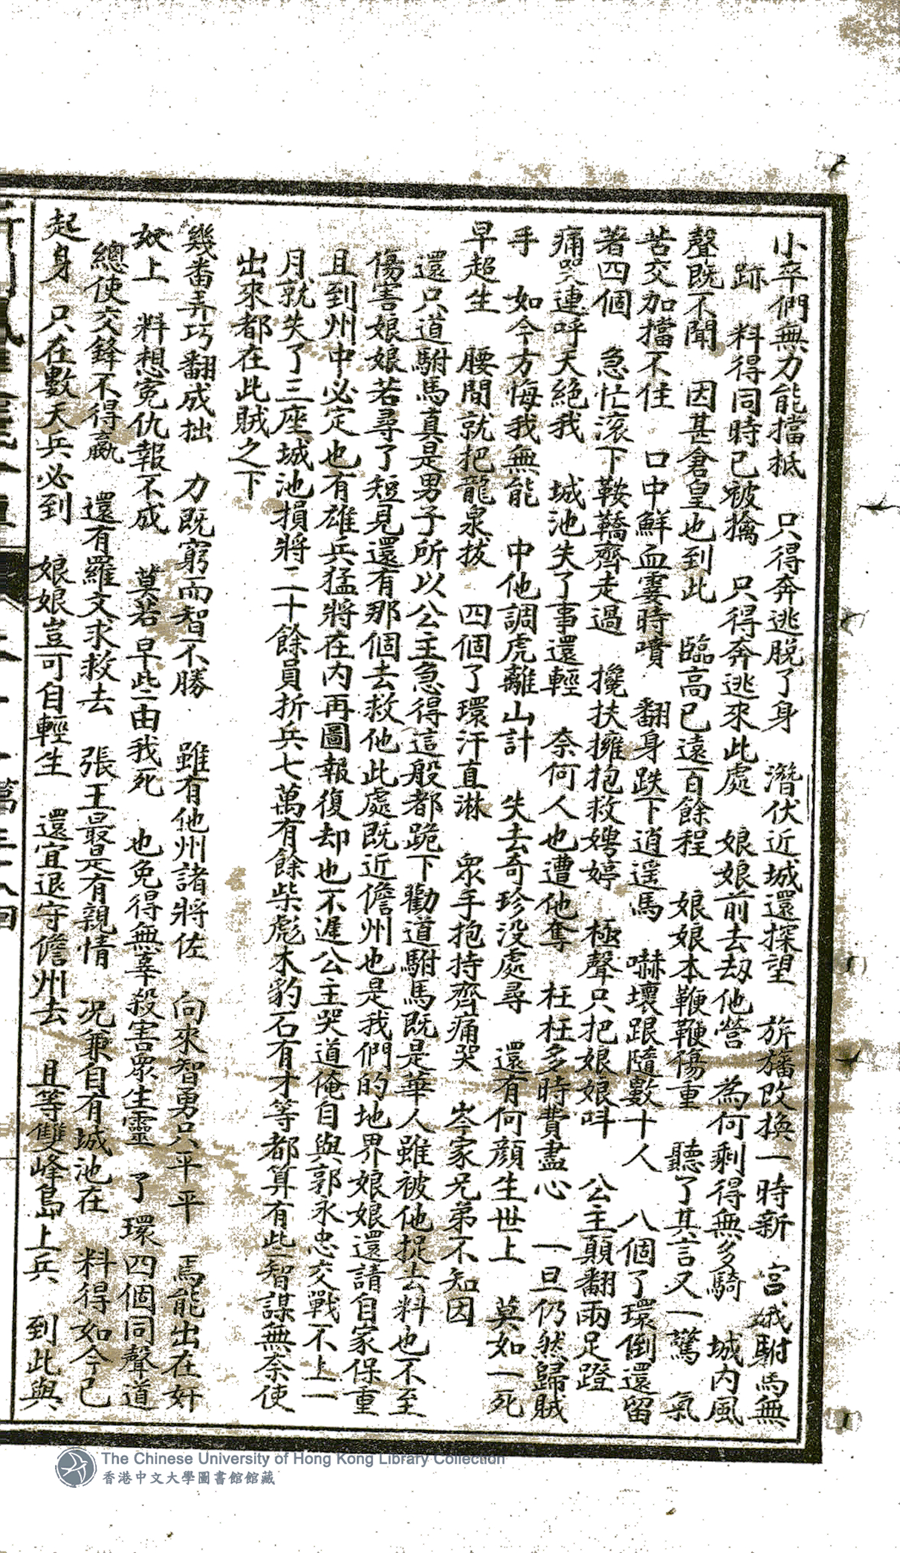 小卒們無力能擋抵　只得奔逃脫了身　潛伏近城還探望　旂旛改換一時新　宮娥駙馬無
跡　料得同時已被擒　只得奔逃來此處　娘娘前去刼他營　為何剩得無多騎　城內風
聲既不聞　因甚倉皇也到此　臨高已遠百餘程　娘娘本鞭傷重　聽了其言又一驚　氣
苦交加擋不住　口中鮮血霎時噴　翻身跌下逍遥馬　嚇壞跟隨數十人　八個了環倒還留
著四個　急忙滚下鞍鞽齊走過　攙扶擁抱救娉婷　極聲只把娘娘呌　公主顛翻兩足蹬
痛哭連呼天絕我　城池失了事還輕　奈何人也遭他奪　枉枉多時費盡心　一旦仍然歸賊
手　如今方悔我無能　中他調虎離山計　失去奇珍没處尋　還有何顏生世上　莫如一死
早超生　腰間就把龍泉拔　四個了環汗直淋　衆手抱持齊痛哭　岑家兄弟不知因
還只道駙馬真是男子所以公主急得這般都跪下勸道駙馬既是華人雖被他捉去料也不至
傷害娘娘若尋了短見還有那個去救他此處既近儋州也是我們的地界娘娘還請自家保重
且到州中必定也有雄兵猛將在內再圖報復却也不遲公主哭道俺自與郭永忠交戰不上一
月就失了三座城池損將二十餘員折兵七萬有餘柴彪木豹石有才等都算有些智謀無奈使
出來都在此賊之下
幾番弄巧翻成拙　力既窮而智不勝　雖有他州諸將佐　向來智勇只平平　焉能出在奸
奴上　料想寃仇報不成　莫若早些由我死　也免得無辜殺害衆生靈　了環四個同聲道
總使交鋒不得贏　還有羅文求救去　張王最是有親情　况兼自有城池在　料得如今已
起身　只在數天兵必到　娘娘豈可自輕生　還宜退守儋州去　且等雙峰島上兵　到此與